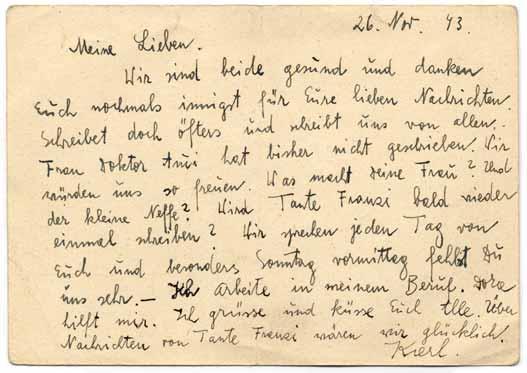 26. Nov. 43.
Meine Lieben.
Wir sind beide gesund und danken
Euch nochmals innigst für Eure lieben Nachrichten.
Schreibet doch öfters und schreibt uns von allen.
Frau Doktor hat bisher nicht geschrieben. Wir
würden uns so freuen. Was macht Deine Frau? Und
der kleine Neffe? Wird Tante Franzi bald wieder
einmal schreiben? Wir sprechen jeden Tag von
Euch und besonders Sonntag vormittag fehlst Du
uns sehr. – Ich arbeite in meinem Beruf. Dora
hilft mir. Ich grüsse und küsse Euch Alle. Über
Nachrichten von Tante Franzi wären wir glücklich.
Karl.